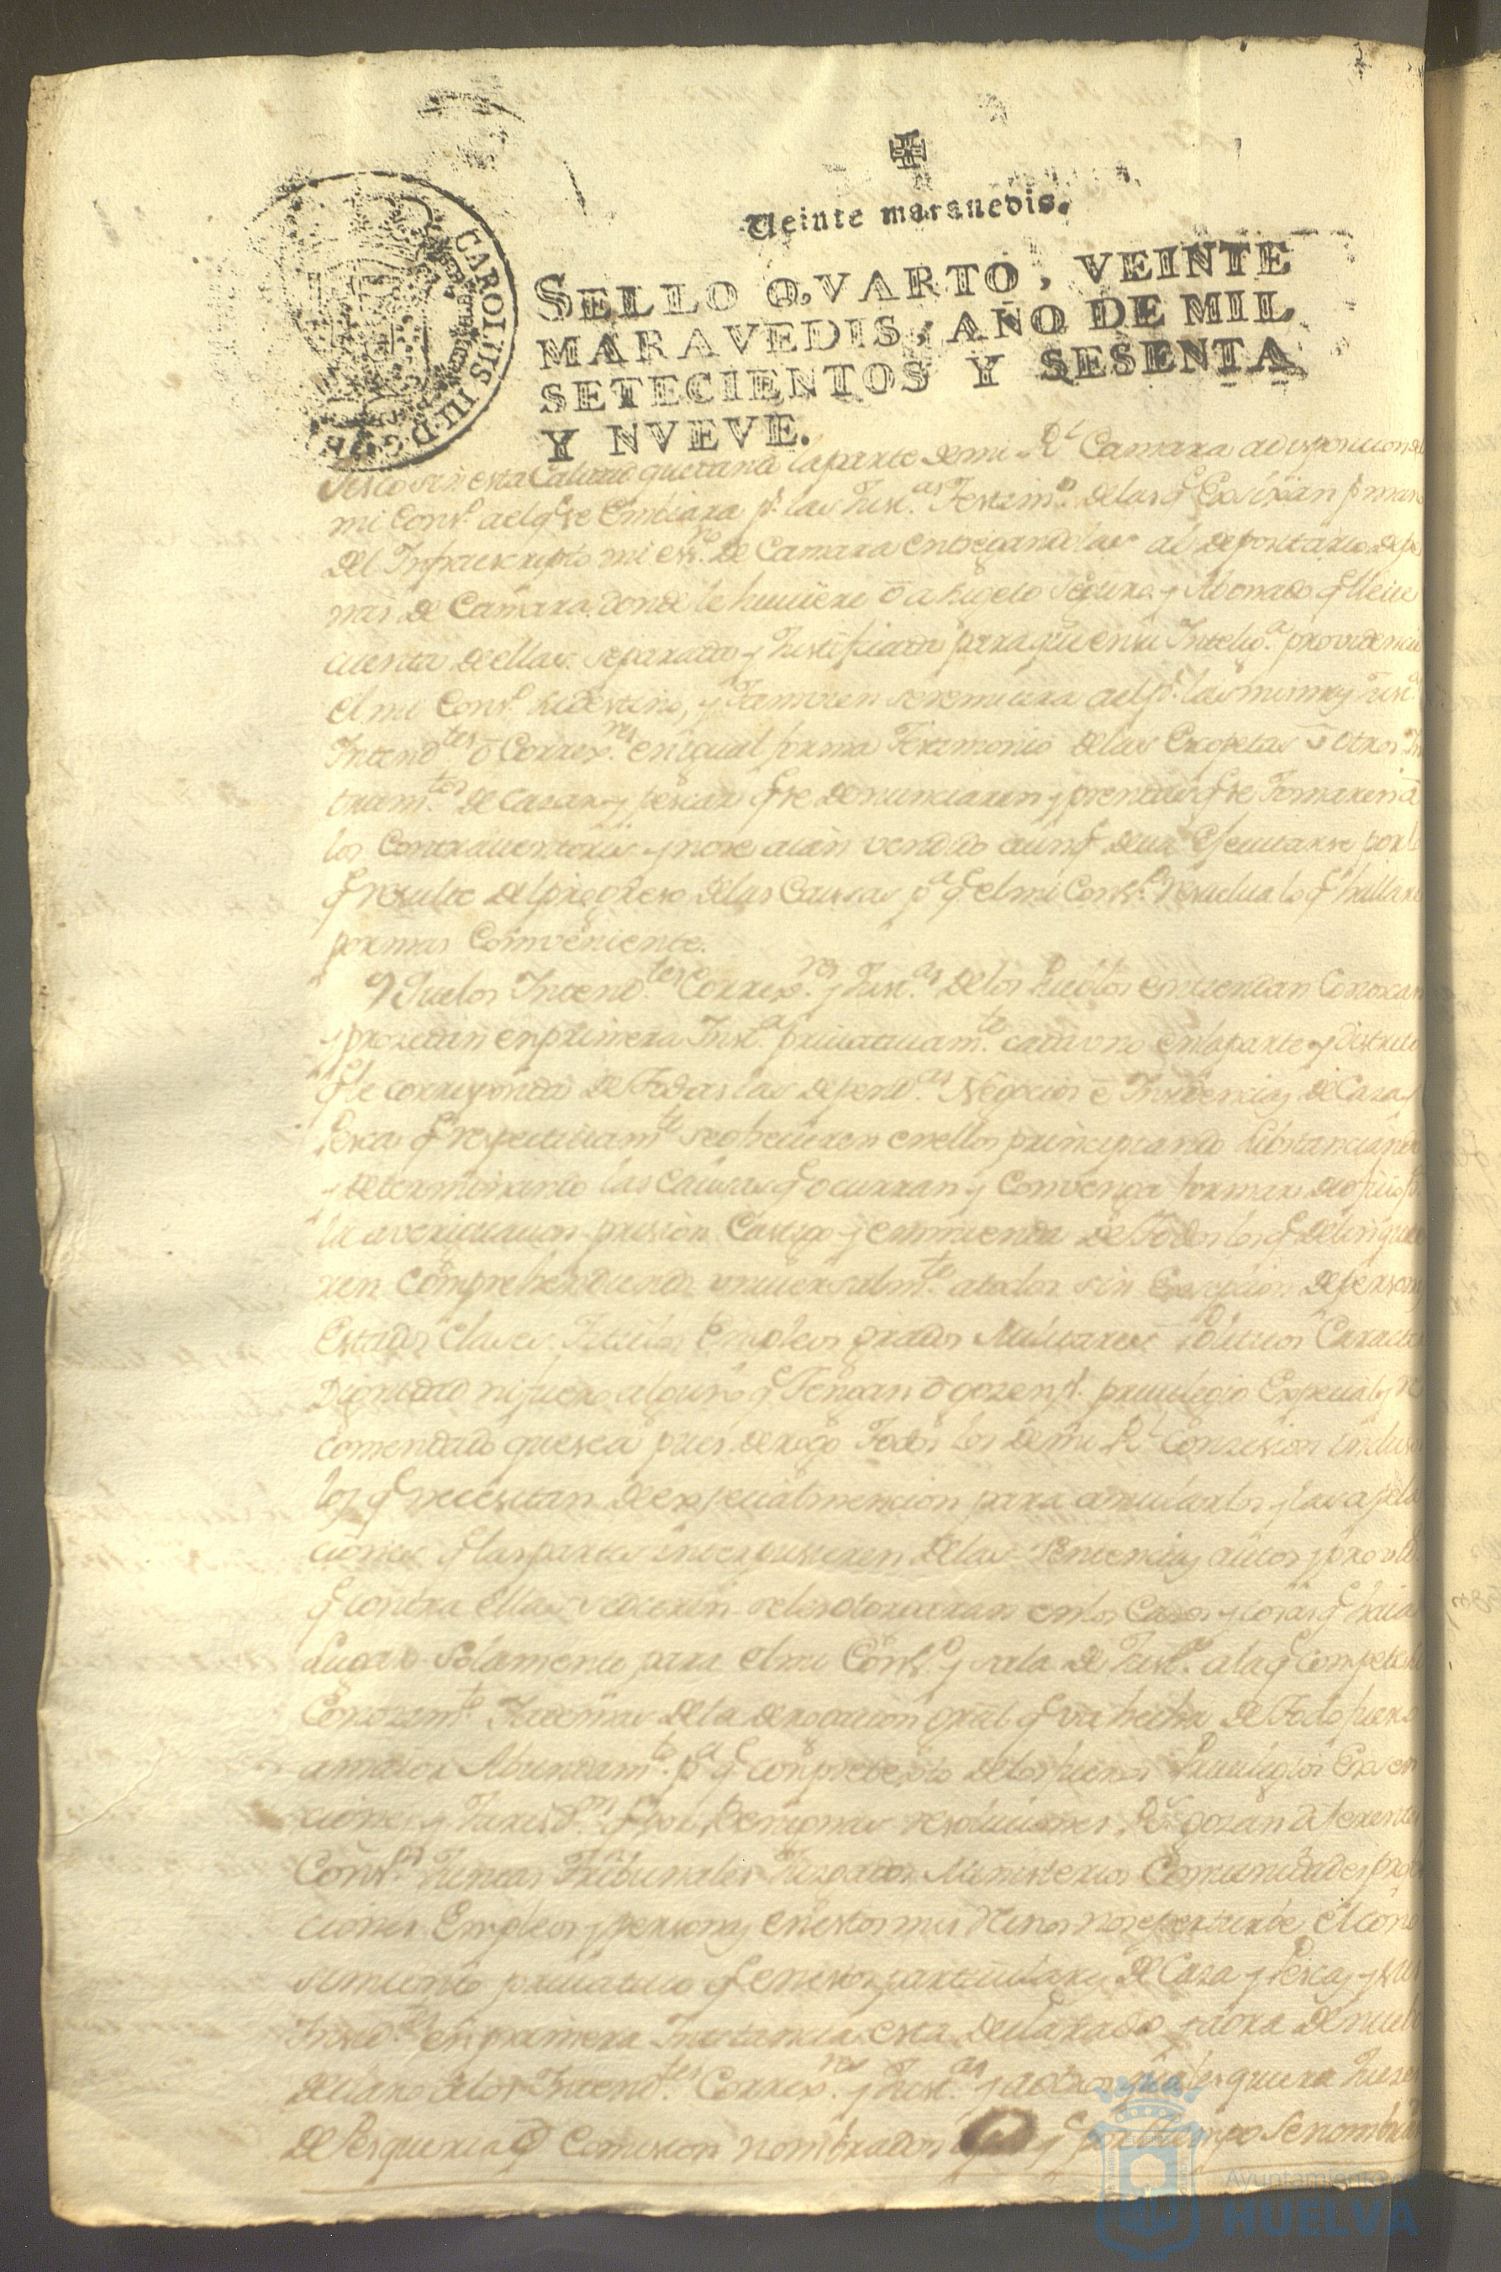 Veinte maravedis.
SELLO QVARTO, VEINTE
MARAVEDIS, AÑO DE MIL
SETECIENTOS Y SESENTA
Y NVEVE.
CAROLUS III D G
sin esta Calidad quedando la parte de mi Rl Camara a disposicion
mi Cons.º a el q se embiara pr las Just.as Testim.º de las q Exsixan
del Infraescripto mi essno de Camara entregandolas al depositario de pe
nas de Camara donde le huuiere o a Sugeto Seguro y Abonado q lleue
cuenta de ellas separada y Justificada para que en su Intelig.a providencie
el mi Cons.º su destino, y tamvien se remitira a el pr las mismas Just.s
Intend.tes o Correx.res en igual forma Testimonio de las Escopetas u otros Ins
trum.tos de Cazar y pescar q se denunciaren y prendas q se Tomaren a
los Contraventores y no se aian vendido aunq deua Executarse por lo
q resulte del progreso de las Causas pa q el mi Cons.º resuelua lo q hallare
por mas Conveniente.
9 Que los Intend.tes Correx.res y Just.as de los Pueblos entiendan Conoscan
y prozedan en primera Inst.a priuatiuam.te cada uno en la parte y distrito
q le corresponda de Todas las depend.as Negocios e Insidencias de Caza
Pesca q respectiuam.te se ofrecieren en ellos principiando substanciando
y determinando las Causas q ocurran y Convenga formar de oficio pa
la averiguacion prision Castigo y enmienda de Todos los q delinquie
ren Comprehendiendo vniuersalm.te a todos sin Exsepcion de persona
Estados Clases Titulos Empleos grados Militares Politicos Caracter
Dignidad ni fuero alguno q Tengan o gozen pr priuilegio Especial y re
comendado que sea pues derogo Todos los de mi Rl Conzesion incluso
los q necesitan de especial mencion para anularlos y las apela
ciones q las partes interpusieren de las Sentencias autos y provid.s
q contra ellas se dieren se les otorgaran en los Casos y cosas q haia
Lugar Solamente para el mi Cons.º y sala de Just.a a la q compete
Conozim.to Y ademas de la derogacion gral q va hecha de Todo fuero
a maior Abundam.to pa q Con pretexto de los fueros Priuilegios Exsen
ciones y Jurisd.nes q por Benignas resoluciones Rs gozan diferentes
Cons.os Juntas Tribunales Juzgados Ministerios Comunidades profe
ciones Empleos y personas en estos mis Reinos no se perturbe el cono
simiento priuatiuo q en estos particulares de Caza y Pesca y sus
Insid.as en primera Instancia esta declarado y aora de nuebo
declaro a los Intend.tes Correx.res y Just.as y a otros qualesquiera Juezes
de Pesqueria o Comision nombrados y q por tiempo Se nombra
Ayuntamiento de
HUELVA